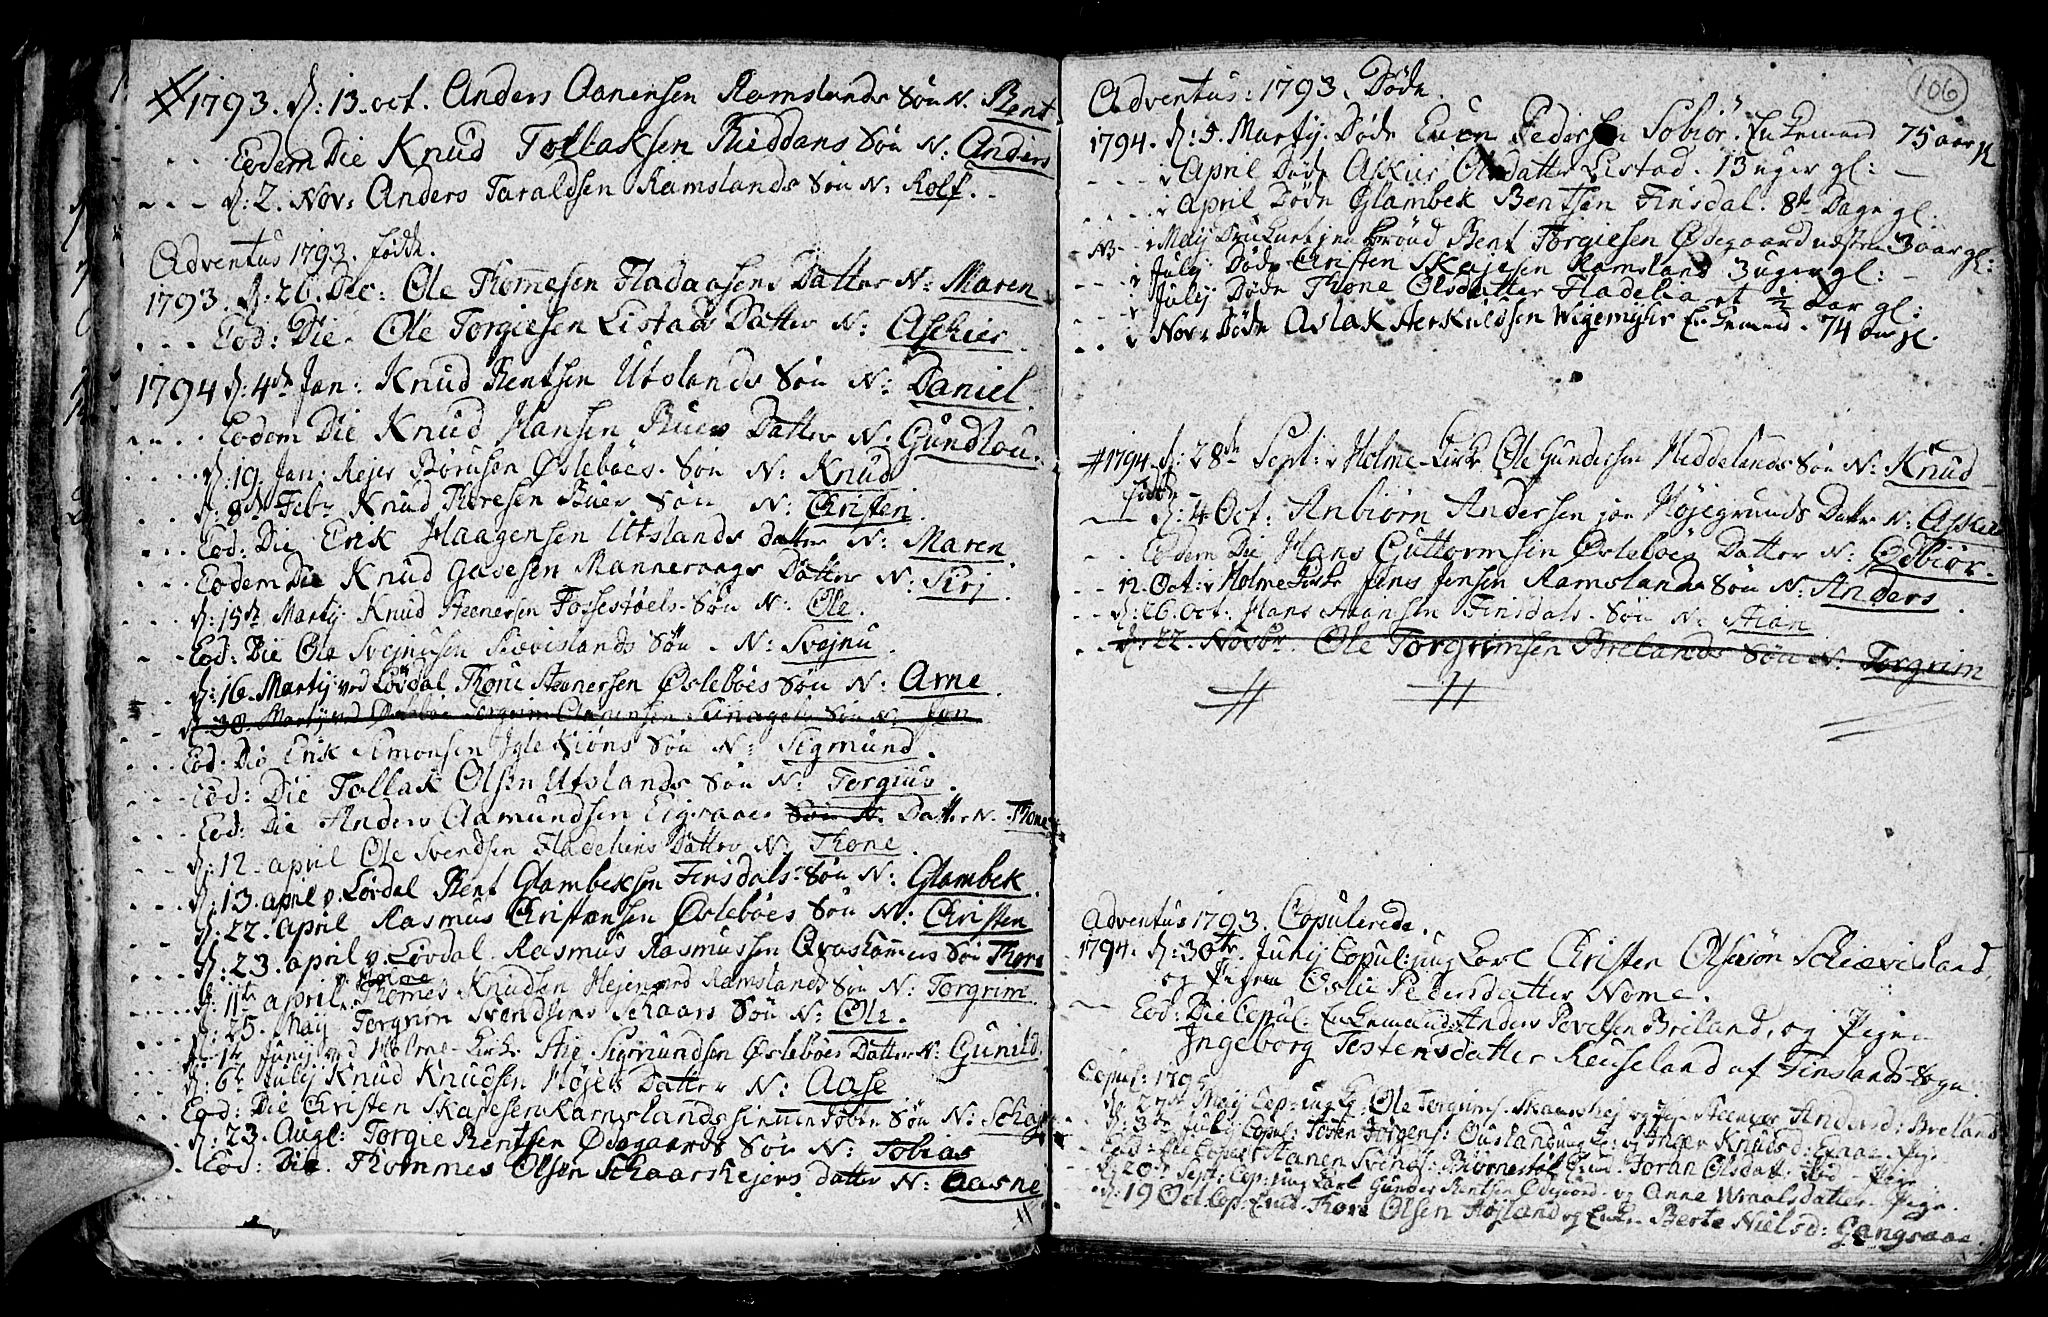 #1793. D: 13. oct. Anders Aanensen Ramslands Søn N. Bent
Eodem Die Knud Tollaksen Riddans Søn N: Anders
D: 2. Nov: Anders Taraldsen Ramslands Søn N: Rolf.
Adventus 1793. fødde.
1793. D: 26. Dec: Ole Thommesen Fladaasens Datter N: Maren
Eod: Die. Ole Torgiesen Listad Datter N: Aschier
1794 D: 4de Jan: Knud Bentsen Utslands Søn N: Daniel
Eodem Die Knud Hansen Buers Datter N: Gundlou
D: 19. Jan: Rejer Børusen Øsleboes Søn N: Knud
D: 8de Febr Knud Thoresen Buer Søn N: Christen
Eod: Die Erik Haagensen Utslands datter N: Maren
Eodem Die Knud Gavesen Mannevaags Datter N: Sirj
D: 15de Martij Knud Steenersen Fossestøels Søn N: Ole
Eod: Die Ole Svejnusen Skievislands Søn N: Svejnu
D: 16. Martij ved Løvdal Thore Steenersen Øsleboes Søn N: Arne
D 30. Martij ved Torgrim Aanensen Søn N: Jon
Eod: Die Erik Simonsen Iglekiøns Søn N: Sigmund
Eod: Die Tollak Olsen Utslands Søn N: Torgius
Eod: Die Anders Aamundsen Eigraaes Søn N. Datter N. Thone
D: 12. april Ole Svendsen Fladeliens Datter N: Thone
D: 13. april v. Løvdal Bent Glambeksen Finsdals Søn N: Glambek
D: 22. april Rasmus Christensen Øsleboes Søn N: Christen
D: 23. april v. Løvdal. Rasmus Rasmussen Qvaskammers Søn Thore
D: 11te april v. Holme Thomes Knudsen Hejen ved Ramslands Søn N: Torgrim
D: 25. Maij Torgrim Svendsens Schaars Søn N: Ole.
D: 14 Junij ved Holme-Kirke Stie Sigmundsen Øsleboes Datter N: Gunild
D: 6te Julij Knud Knudsen Højes Datter N: Aase
Eod: Die Christen Skajesen Ramslands Søn N: Schaj
D: 23. Aug: Torgie Bentsen Ødegaards Søn N: Tobias
Eod: Die. Thommes Olsen Schaarshejens datter N: Aasne
106
Adventus: 1793. Døde.
1794. D: 5. Martij. Døde Even Pedersen Sobiør. Enkemand 75 aar gl
i April Døde Askier Olsdatter Listad. 13 uger gl:
i April Døde Glambek Bentsen Finsdal. 8te Dage gl:
NB i Maij Bent Torgiesen Ødegaard 3 aar gl:
i Julij Døde Christen Skajesen Ramsland 3 uger gl:
i Julij Døde Thone Olsdatter Fladelia et ½ Aar gl:
i Nov: Døde Aslak Herkuldsen Wigemyhr Enkemand. 74 aar gl.
#1794. D: 28de Sept: i Holme-Kirke Ole Gundersen Heddelands Søn N: Knud
fødde
D: 4 Oct: Anbiørn Andersen paa Højegrunds Datter N: Asker
Eodem Die Hans Guttormsen Øsleboes Datter N: Odbiør.
12. Oct: i Holme Kirke Jens Jensen Ramslands Søn N: Anders
D: 26. Oct: Hans Hansen Finsdals. Søn N: Stian
D: 22. Novbr. Ole Torgrimsen Brelands Søn N: Torgrim
Adventus 1793. Copulerede.
1794. D: 30te Junij Copul: ung Karl Christen Olsøn Schiævesland
og Pigen Oslie Pedersdatter Nome.
Eod: Die Copul: Enkemand Anders Povelsen Breland, og Pigen
Ingeborg Testensdatter Reuseland af Finslands Sogn
Copul: 1795
D: 27de Maij Cop: ung K: Ole Torgrims: Skaarshej og Pige Anders d: Breland
D: 3de Julij Copul: Testen Jørgens: Ousland ung K: og Inger Knuds d:
Eod Die Copul: Hanen Svends: Biørnestøl og Joran Olsdatt: ibid Pige
D: 20de Sept: Cop: ung Karl Gunder Bentsen Ødegaard og Anne Wraalsdatter Pige.
D: 19 Oct Cop: Thore Olsen Højland og Enke Berte Niels d: Gangsaae